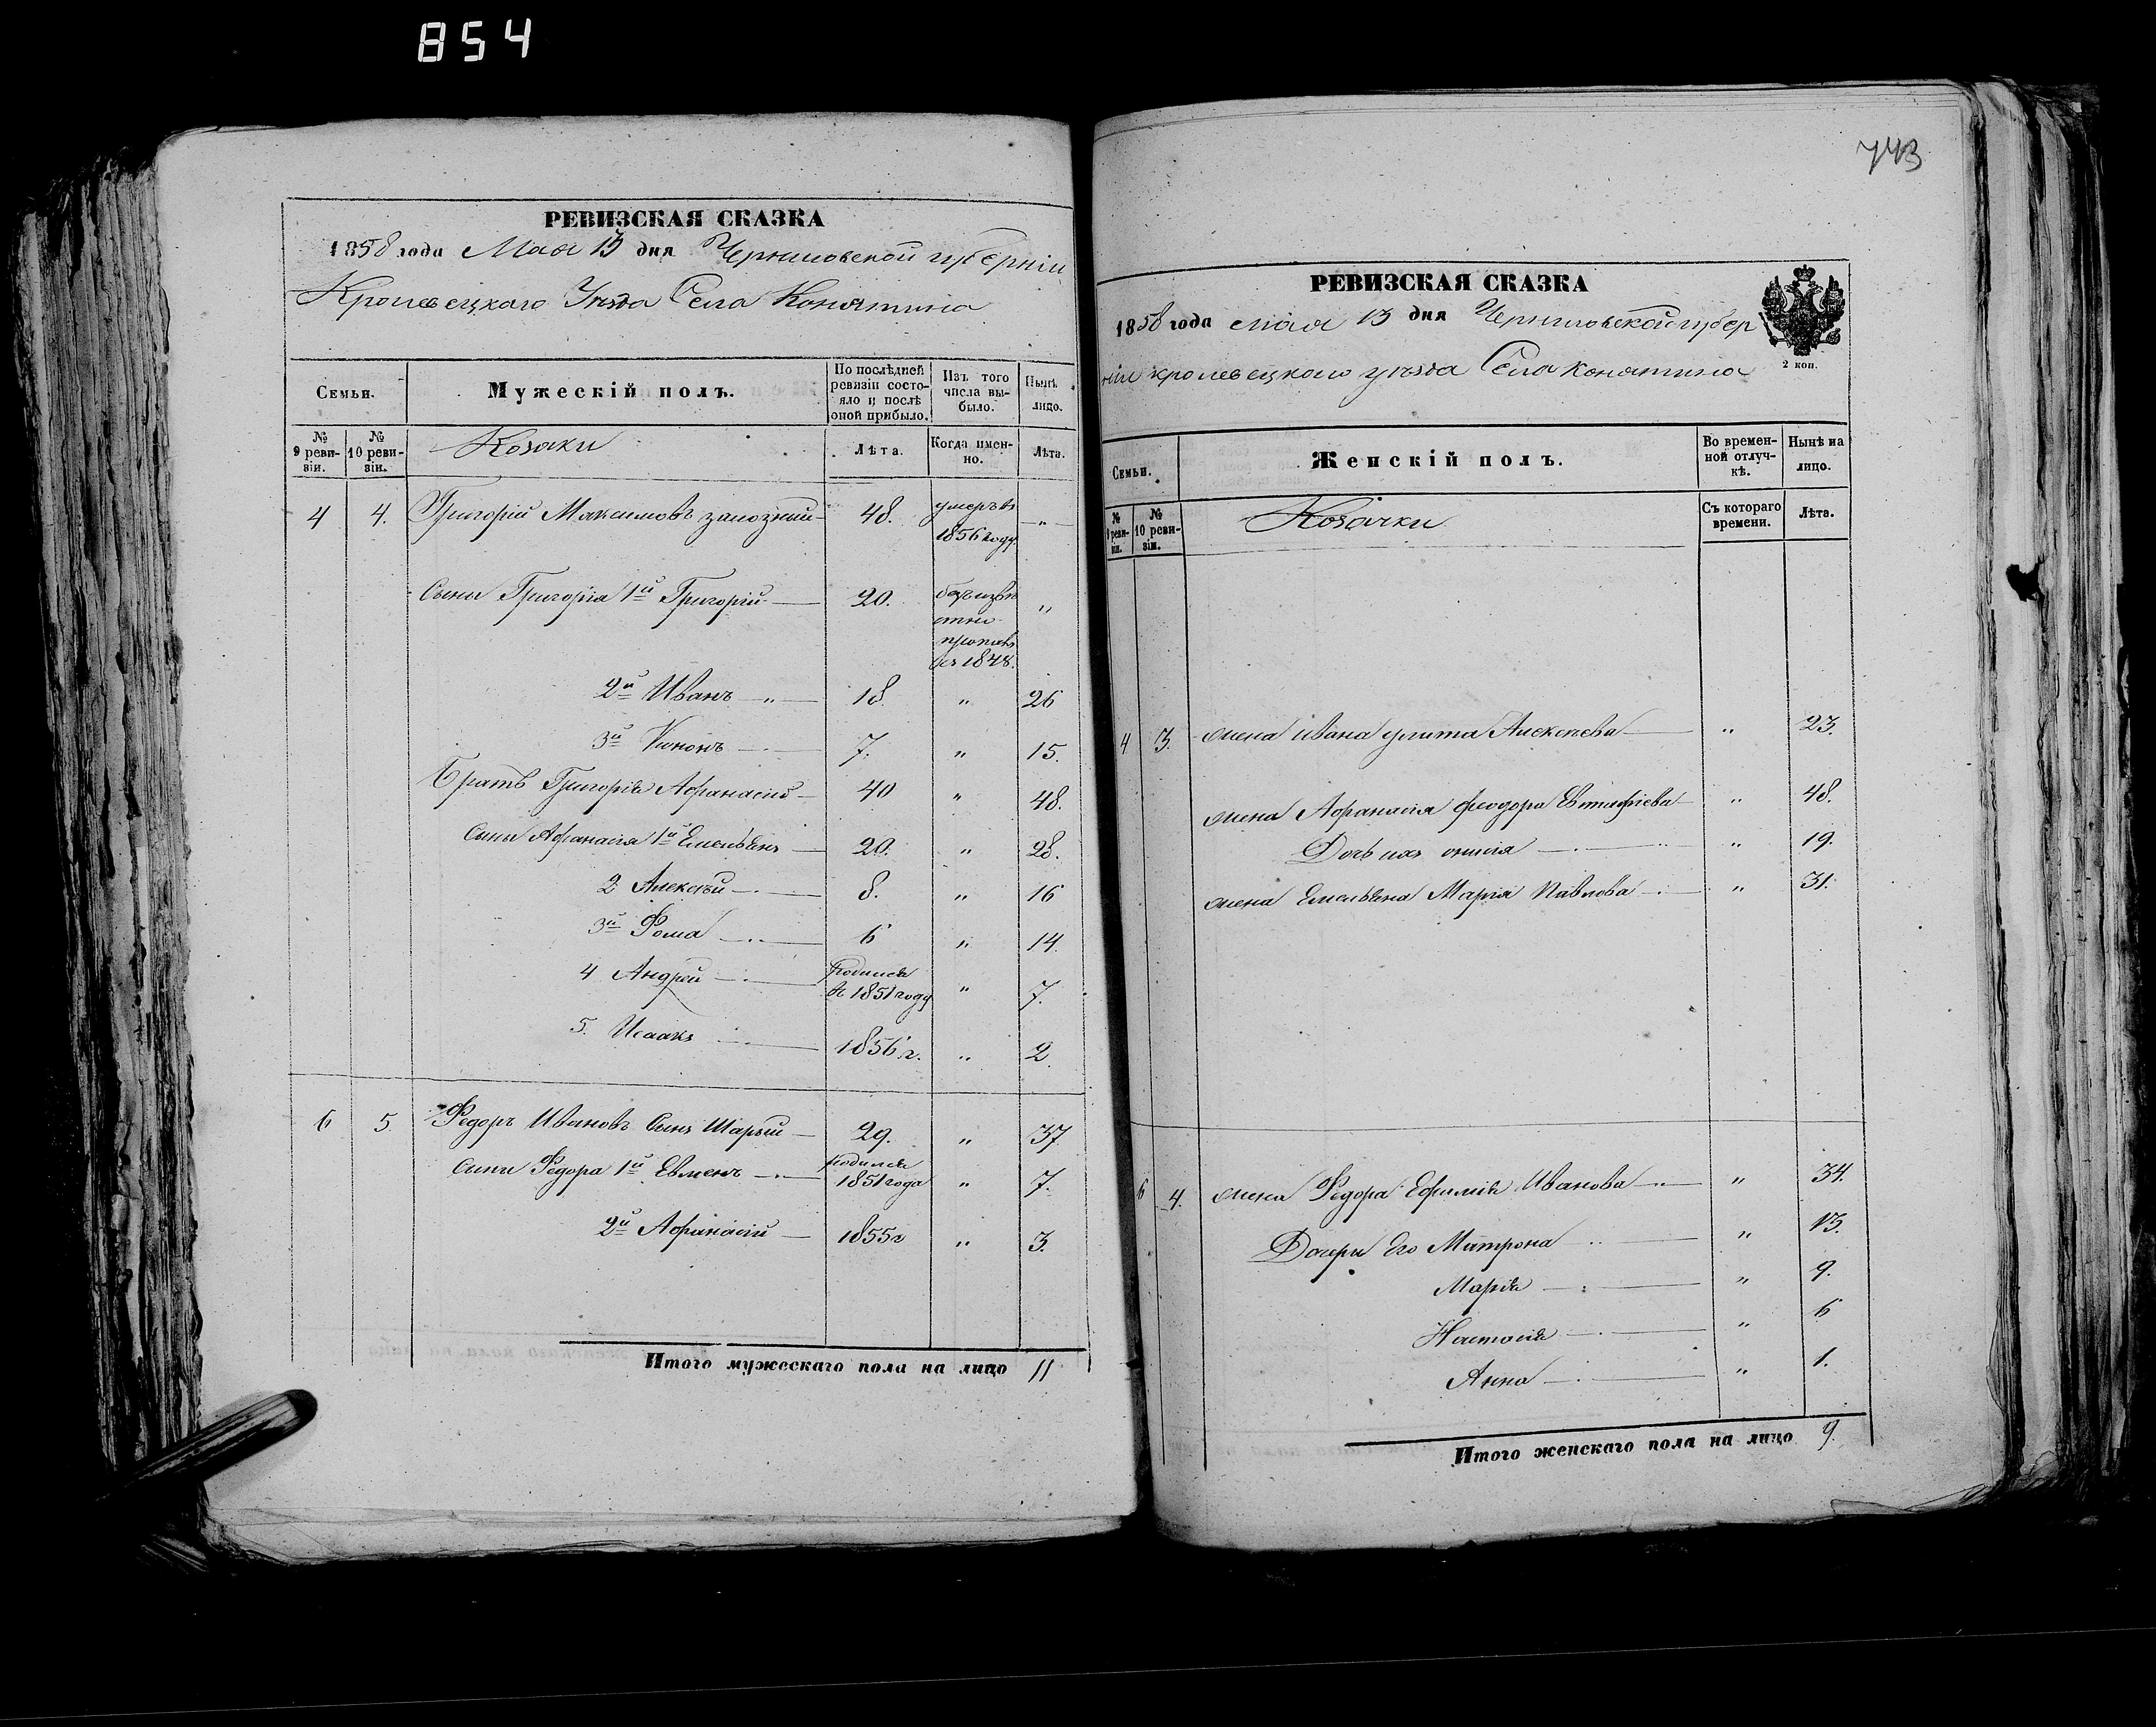 854
РЕВИЗСКАЯ СКАЗКА
1858 года Мая 13 дня Черниговской губерніи
Кролевецкаго Уѣзда Села Конятина
Семьи.
Мужескій полъ.
По послѣдней ревизіи состояло и послѣ оной прибыло.
Изъ того числа выбыло.
Нынѣ лицо.
№ 9 ревизіи.
№ 10 ревизіи.
Козаки
Лѣта.
Когда именно.
Лѣта.
4 4. Григорій Максимовъ 48. умеръ въ 1856 году „
Сыны Григорія 1й Григорій 20. 1848. „
2й Иванъ „ 18. „ 26
3й 7. „ 15.
Братъ Григорія Афанасій 40 „ 48.
Сыны Афанасія 1й Емельянъ 20. „ 28.
2 Алексѣй 8. „ 16
3й Фома 6 „ 14.
4 Андрей Родился въ 1851 году „ 7.
5. Исаакъ 1856 г. „ 2
6 5 Федоръ Ивановъ Сынъ Шарый 29. „ 37
Сыны Федора 1й Евменъ Родился 1851 года „ 7.
2й Афанасій 1855 г „ 3.
Итого мужескаго пола на лицо 11
743
РЕВИЗСКАЯ СКАЗКА
1858 года мая 13 дня Черниговской губер
ніи кролевецкаго уѣзда Села конятина
2 коп.
Семьи.
Женскій полъ.
Во временной отлучкѣ.
Нынѣ на лицо.
№ 9 ревизіи.
№ 10 ревизіи.
Козачки
Съ котораго времени.
Лѣта.
4 3. жена ивана улита Алексѣева „ 23.
жена Афанасія феодора Евтифіева „ 48.
Дочь ихъ „ 19.
жена Емельяна Марія Павлова „ 31.
6 4. жена Федора Ефимія Иванова „ 34.
Дочери Его Матрона „ 13.
Марія „ 9.
Настасія „ 6
Анна „ 1.
Итого женскаго пола на лицо 9.